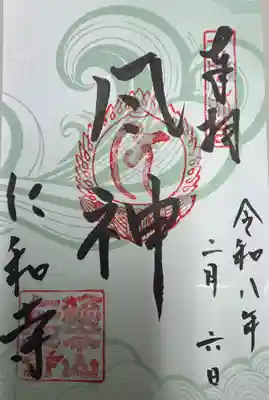 奉拝
令和八年
二月六日
風神
仁和寺